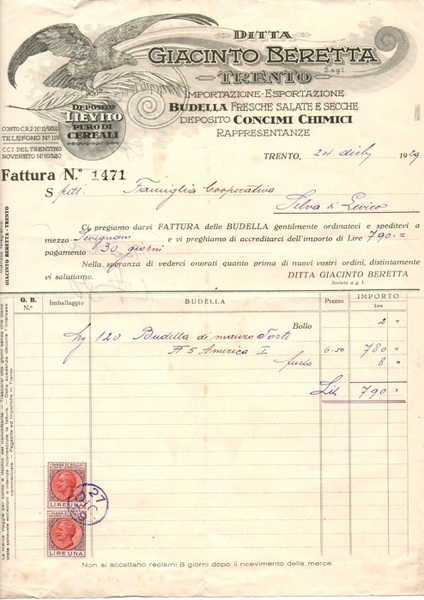 DITTA
GIACINTO BERETTA
S.a g l.
TRENTO
IMPORTAZIONE-ESPORTAZIONE
BUDELLA FRESCHE SALATE E SECCHE
DEPOSITO CONCIMI CHIMICI
RAPPRESENTANZE
DEPOSITO
LIEVITO
PURO DI
CEREALI
CONTO C.R.P. N. 11/952
TELEFONO No 119
C.C.I. DEL TRENTINO
ROVERETO No 10320
TRENTO, 24 1929
Fattura N.o 1471
Spett. Famiglia Cooperativa
Selva di Levico
Ci pregiamo darvi FATTURA delle BUDELLA gentilmente ordinateci e speditevi a
mezzo e vi preghiamo di accreditarci dell'importo di Lire 790.=
pagamento 30 giorni
Nella speranza di vederci onorati quanto prima di nuovi vostri ordini, distintamente
vi salutiamo.
DITTA GIACINTO BERETTA
Società a g. l.
GIACINTO BERETTA - TRENTO
G. B. N.o Imballaggio BUDELLA Prezzo IMPORTO Lire
Bollo 2 =
120 Budella di Torti
5 America I 6.50 780 =
8 =
Lit. 790 =
LIRE UNA
LIRE UNA
27 DIC
Non si accettano reclami 8 giorni dopo il ricevimento della merce.